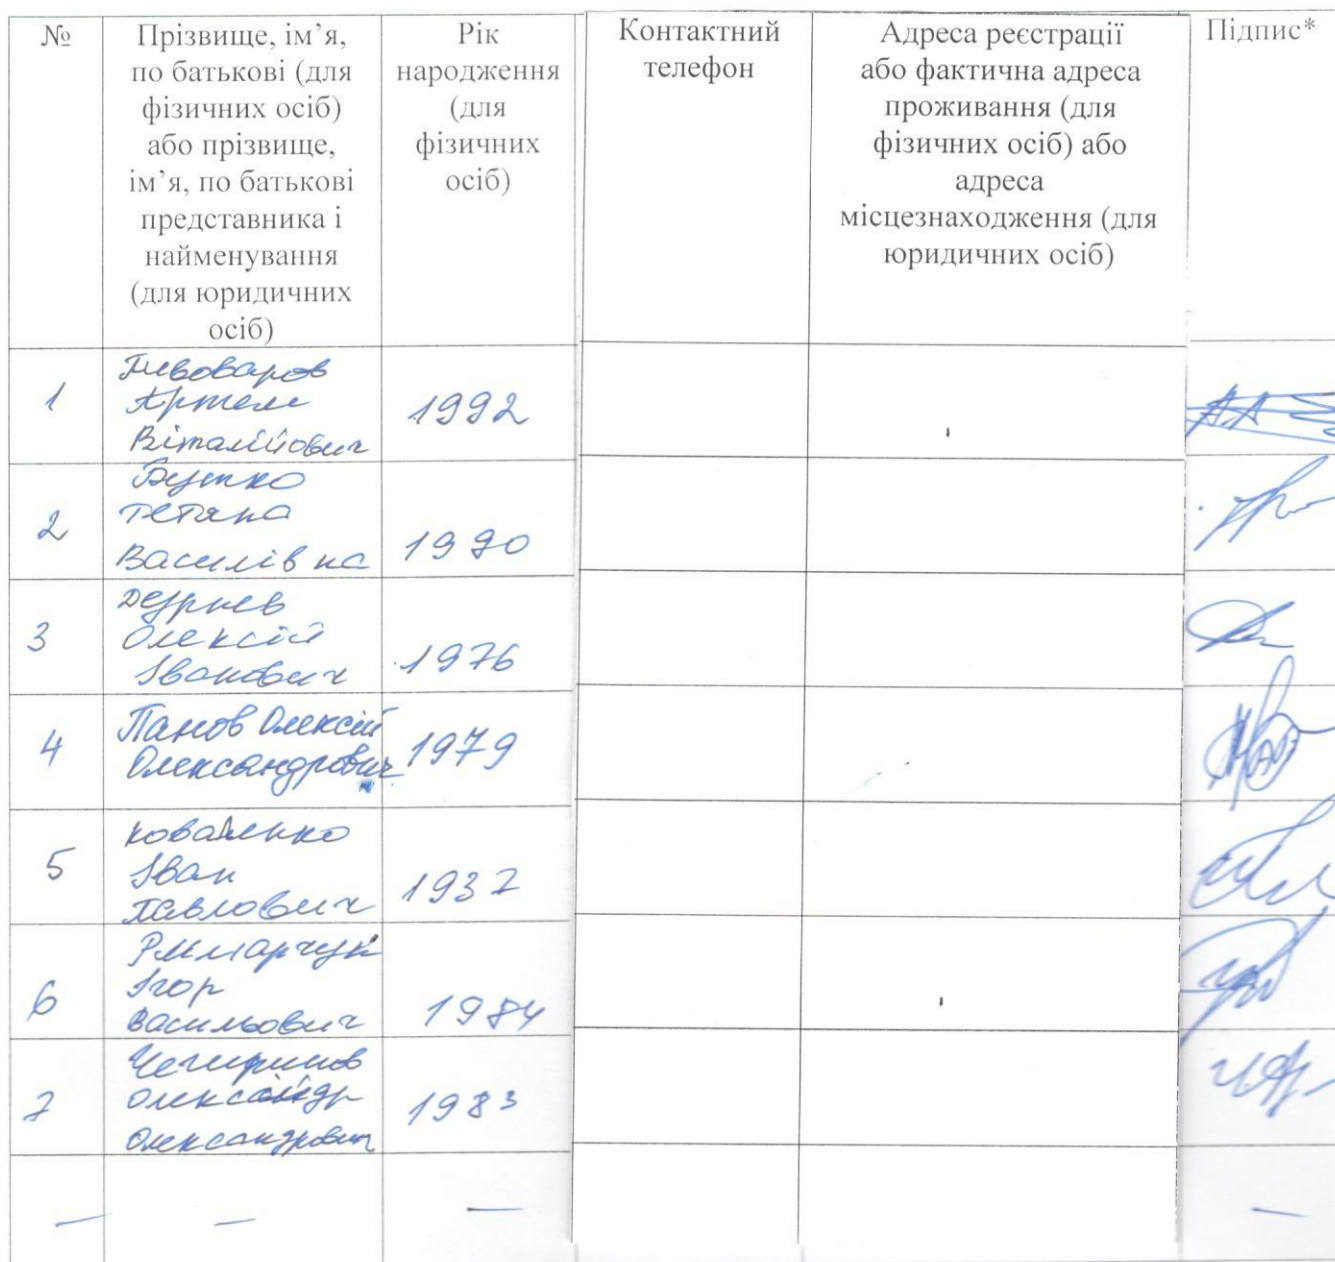 №
Прізвище, ім’я,
по батькові (для
фізичних осіб)
або прізвище,
ім’я, по батькові
представника і
найменування
(для юридичних
осіб)
Рік
народження
(для
фізичних
осіб)
Контактний
телефон
Адреса реєстрації
або фактична адреса
проживання (для
фізичних осіб) або
адреса
місцезнаходження (для
юридичних осіб)
Підпис*
1
Пивоваров
Артем
Віталійович
1992
2
Бутко
Тетяна
Василівна
1990
3
Олексій
Іванович
1976
4
Панов Олексій
Олександрович
1979
5
Коваленко
Іван
Павлович
1937
6
Римарчук
Ігор
Васильович
1984
7
Чегиринов
Олександр
Олександрович
1983
— — — —